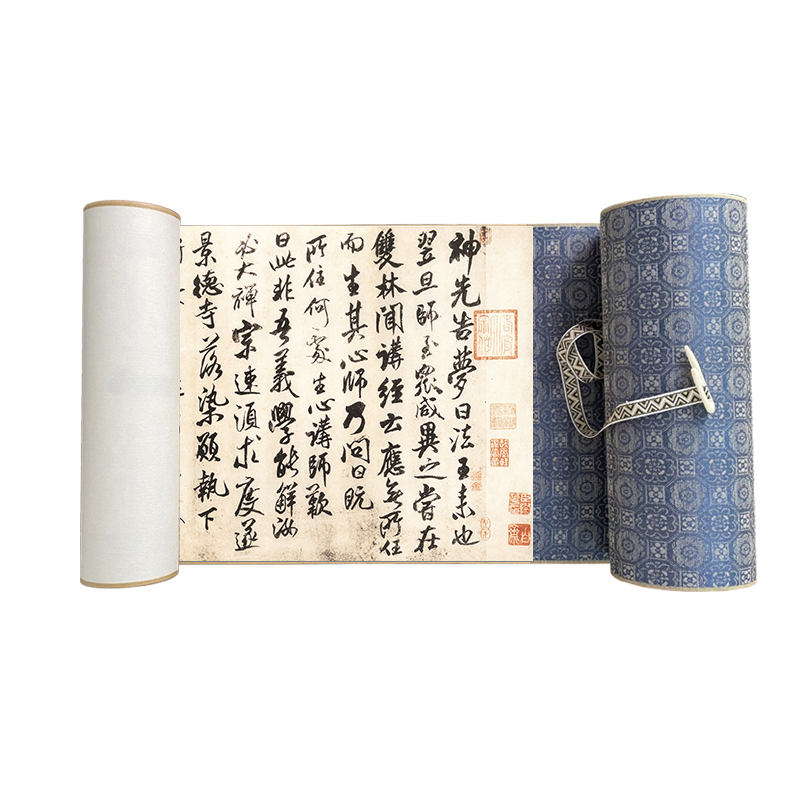 神先告夢曰法王来也
翌旦師至眾咸異之嘗在
雙林聞講經云應無所住
而生其心師乃問曰既
所住何處生心講師歎
曰此非吾義學能解汝
必大禪宗速須求度遂
景德寺落染願執下